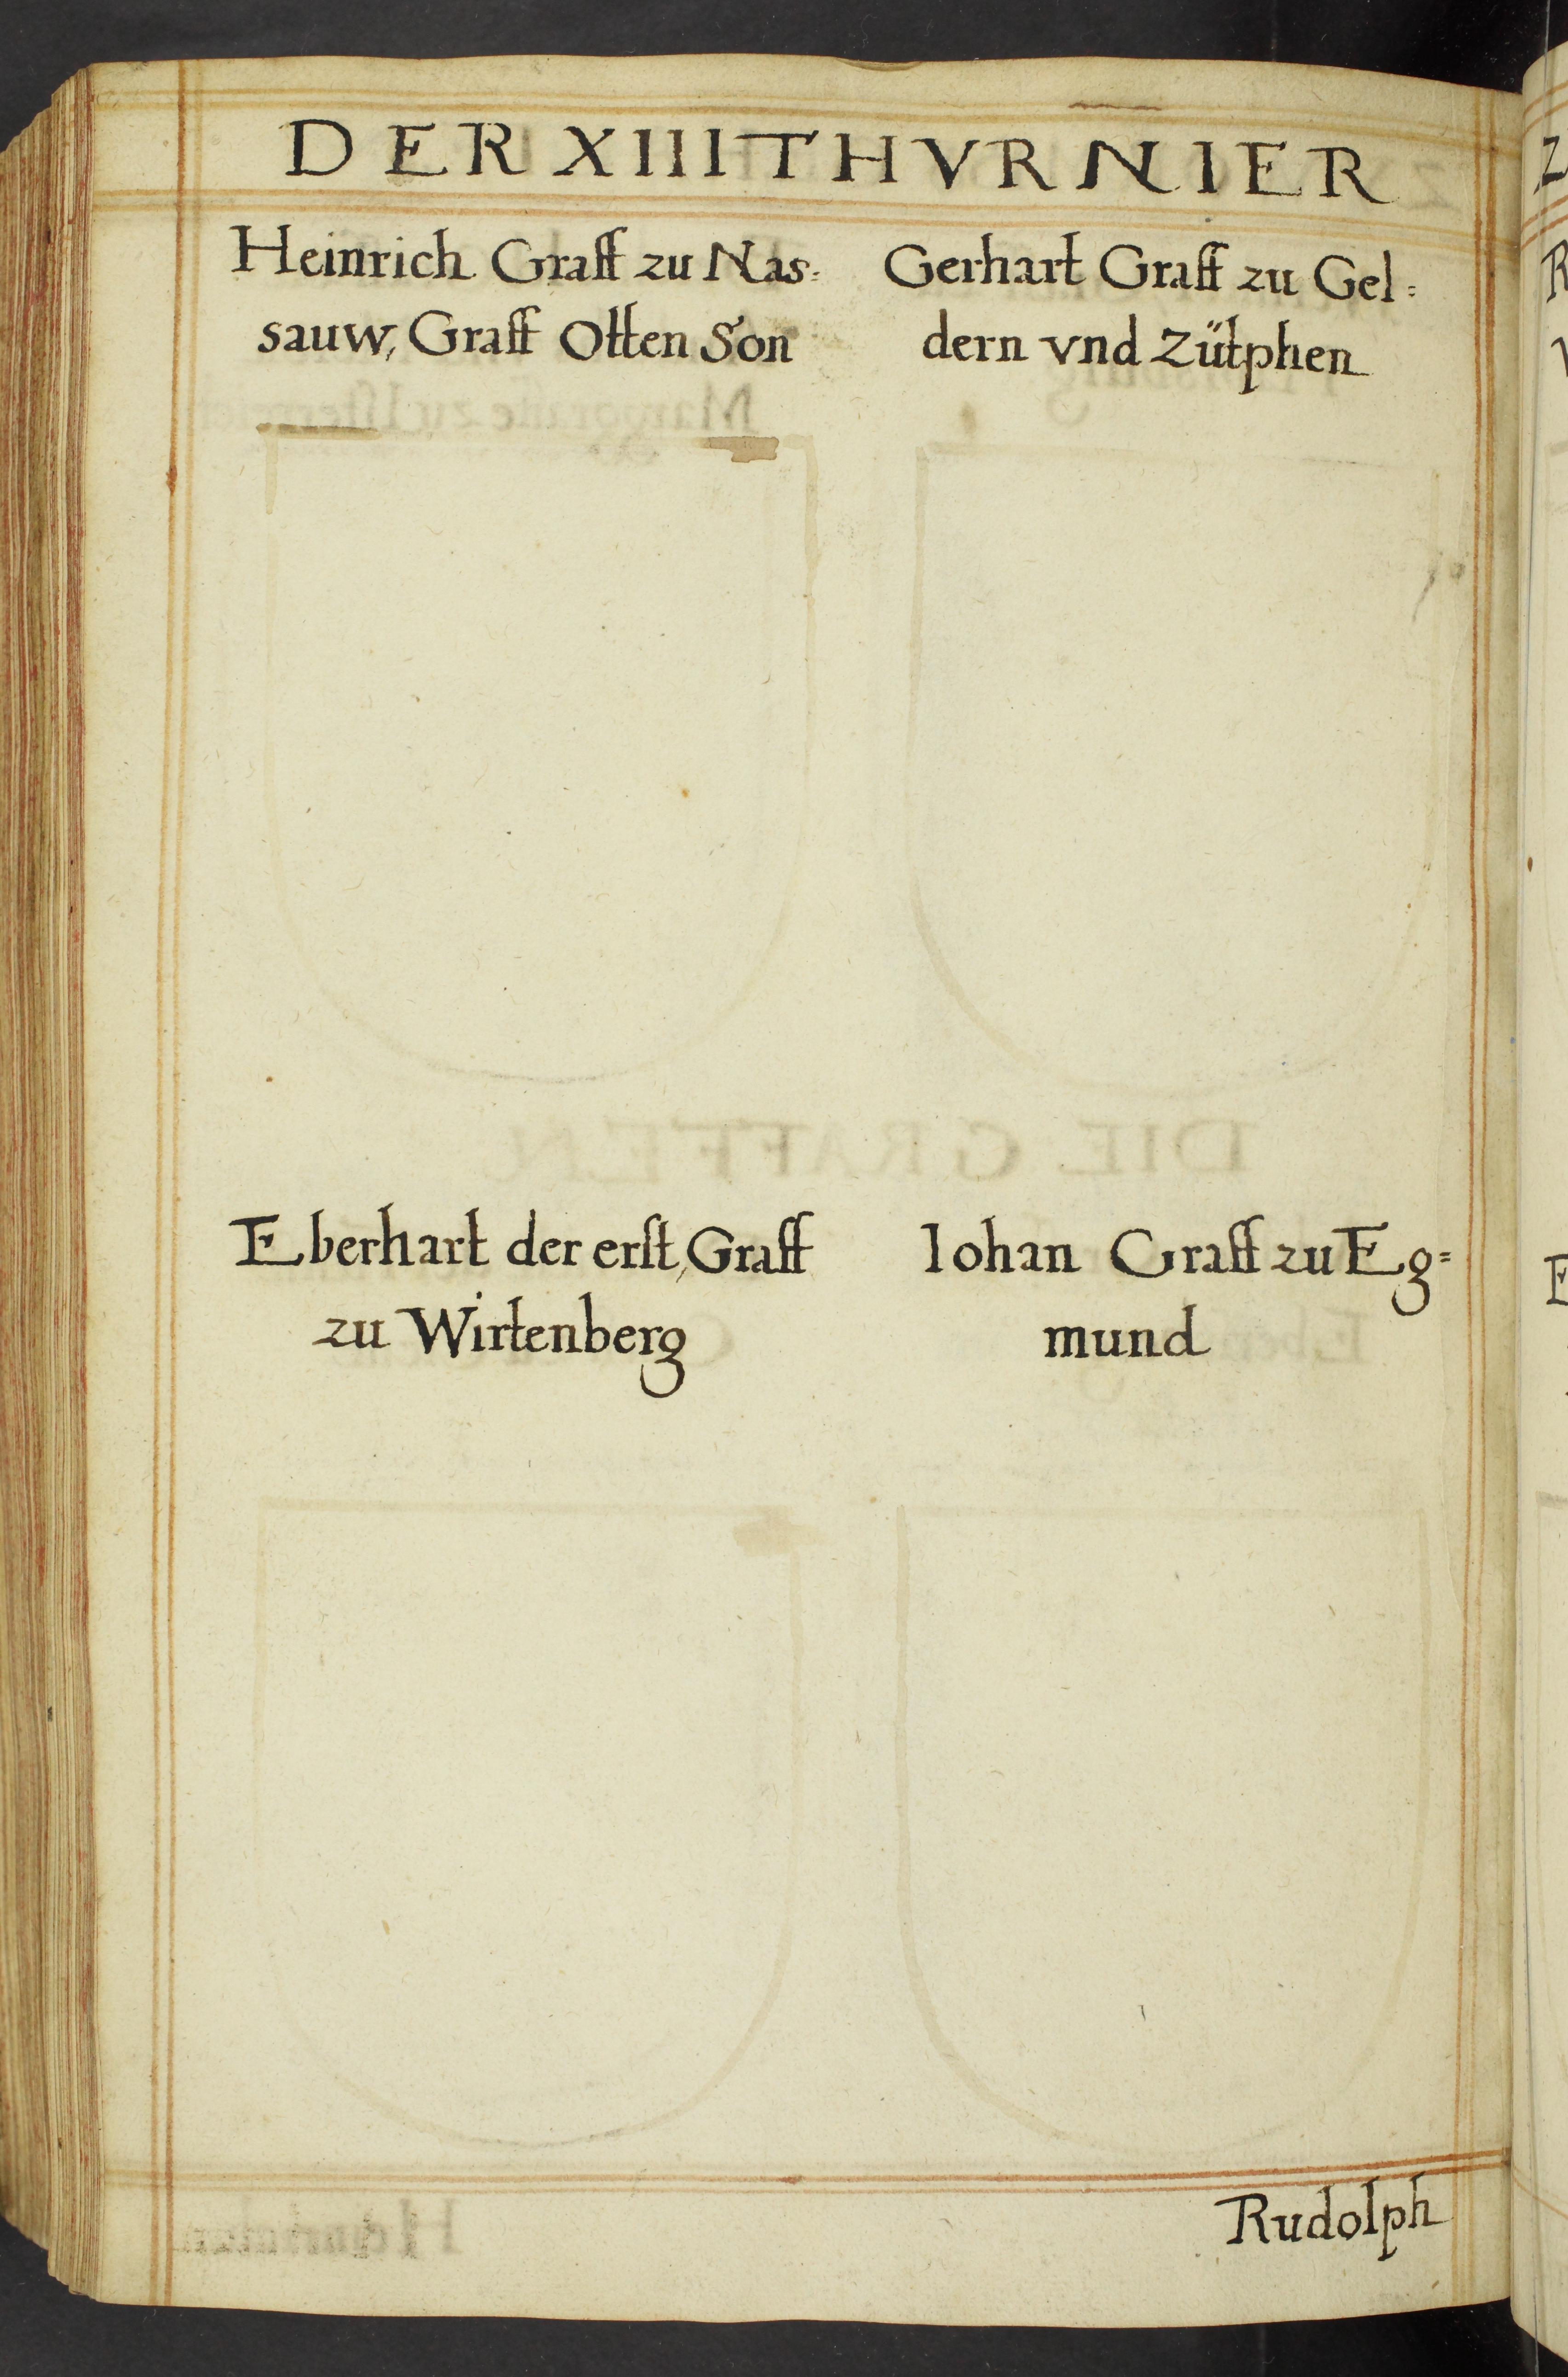 DER XIIII THVRNIER
Heinrich Graff zu Nas=
sauw, Graff Otten Son
Gerhart Graff zu Gel=
dern vnd Zütphen
Eberhart der erſt, Graff
zu Wirtenberg
Iohan Graff zu Eg=
mund
Rudolph